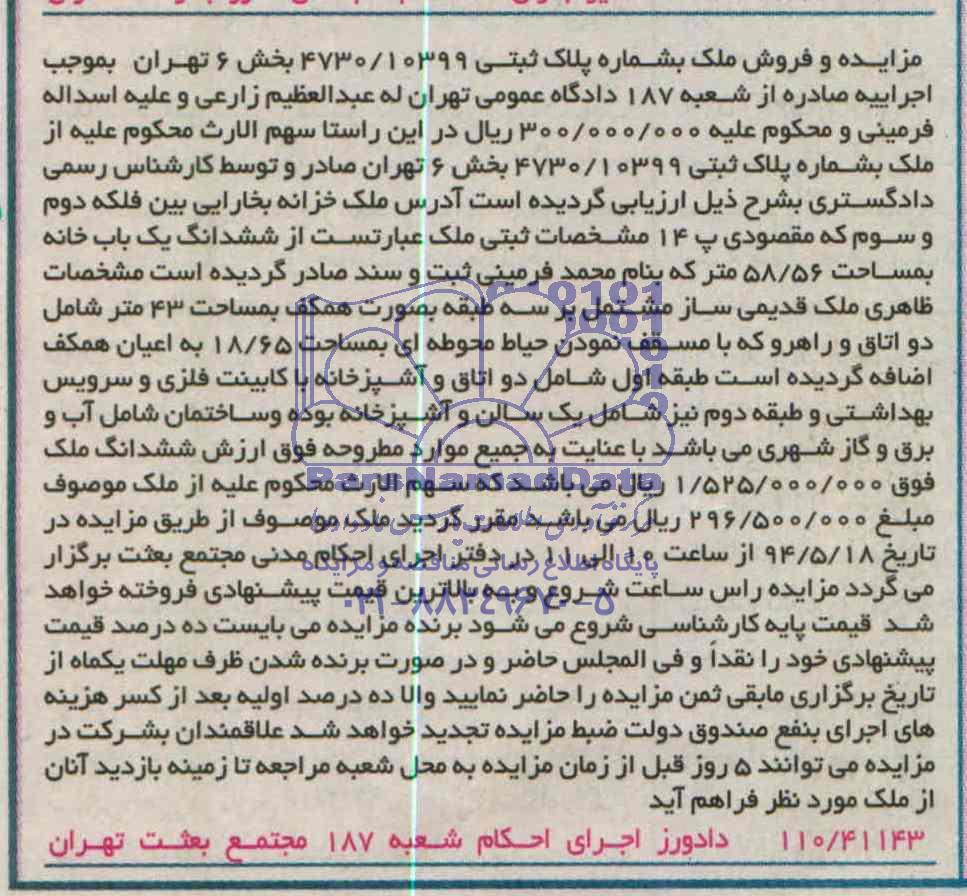 مزایده و فروش ملک بشماره پلاک ثبتی ۴۷۳۰/۱۰۳۹۹ بخش ۶ تهران بموجب
اجراییه صادره از شعبه ۱۸۷ دادگاه عمومی تهران له عبدالعظیم زارعی و علیه اسداله
فرمینی و محکوم علیه ۳۰۰/۰۰۰/۰۰۰ ریال در این راستا سهم الارث محکوم علیه از
ملک بشماره پلاک ثبتی ۴۷۳۰/۱۰۳۹۹ بخش ۶ تهران صادر و توسط کارشناس رسمی
دادگستری بشرح ذیل ارزیابی گردیده است آدرس ملک خزانه بخارایی بین فلکه دوم
و سوم که مقصودی پ ۱۴ مشخصات ثبتی ملک عبارتست از ششدانگ یک باب خانه
بمساحت ۵۸/۵۶ متر که بنام محمد فرمینی ثبت و سند صادر گردیده است مشخصات
ظاهری ملک قدیمی ساز مشتمل بر سه طبقه بصورت همکف بمساحت ۴۳ متر شامل
دو اتاق و راهرو که با مسقف نمودن حیاط محوطه ای بمساحت ۱۸/۶۵ به اعیان همکف
اضافه گردیده است طبقه اول شامل دو اتاق و آشپزخانه با کابینت فلزی و سرویس
بهداشتی و طبقه دوم نیز شامل یک سالن و آشپزخانه بوده وساختمان شامل آب و
برق و گاز شهری می باشد با عنایت به جمیع موارد مطروحه فوق ارزش ششدانگ ملک
فوق ۱/۵۲۵/۰۰۰/۰۰۰ ریال می باشد که سهم الارث محکوم علیه از ملک موصوف
مبلغ ۲۹۶/۵۰۰/۰۰۰ ریال می باشد مقرر گردید ملک موصوف از طریق مزایده در
تاریخ ۹۴/۵/۱۸ از ساعت ۱۰ الی ۱۱ در دفتر اجرای احکام مدنی مجتمع بعثت برگزار
می گردد مزایده راس ساعت شروع و به بالاترین قیمت پیشنهادی فروخته خواهد
شد قیمت پایه کارشناسی شروع می شود برنده مزایده می بایست ده درصد قیمت
پیشنهادی خود را نقداً و فی المجلس حاضر و در صورت برنده شدن ظرف مهلت یکماه از
تاریخ برگزاری مابقی ثمن مزایده را حاضر نمایید والا ده درصد اولیه بعد از کسر هزینه
های اجرای بنفع صندوق دولت ضبط مزایده تجدید خواهد شد علاقمندان بشرکت در
مزایده می توانند ۵ روز قبل از زمان مزایده به محل شعبه مراجعه تا زمینه بازدید آنان
از ملک مورد نظر فراهم آید
۱۱۰/۴۱۱۴۳ دادورز اجرای احکام شعبه ۱۸۷ مجتمع بعثت تهران
ParsNamadData
پایگاه اطلاع رسانی مناقصه و مزایده
۰۲۱-۸۸۳۴۹۶۷۰-۵